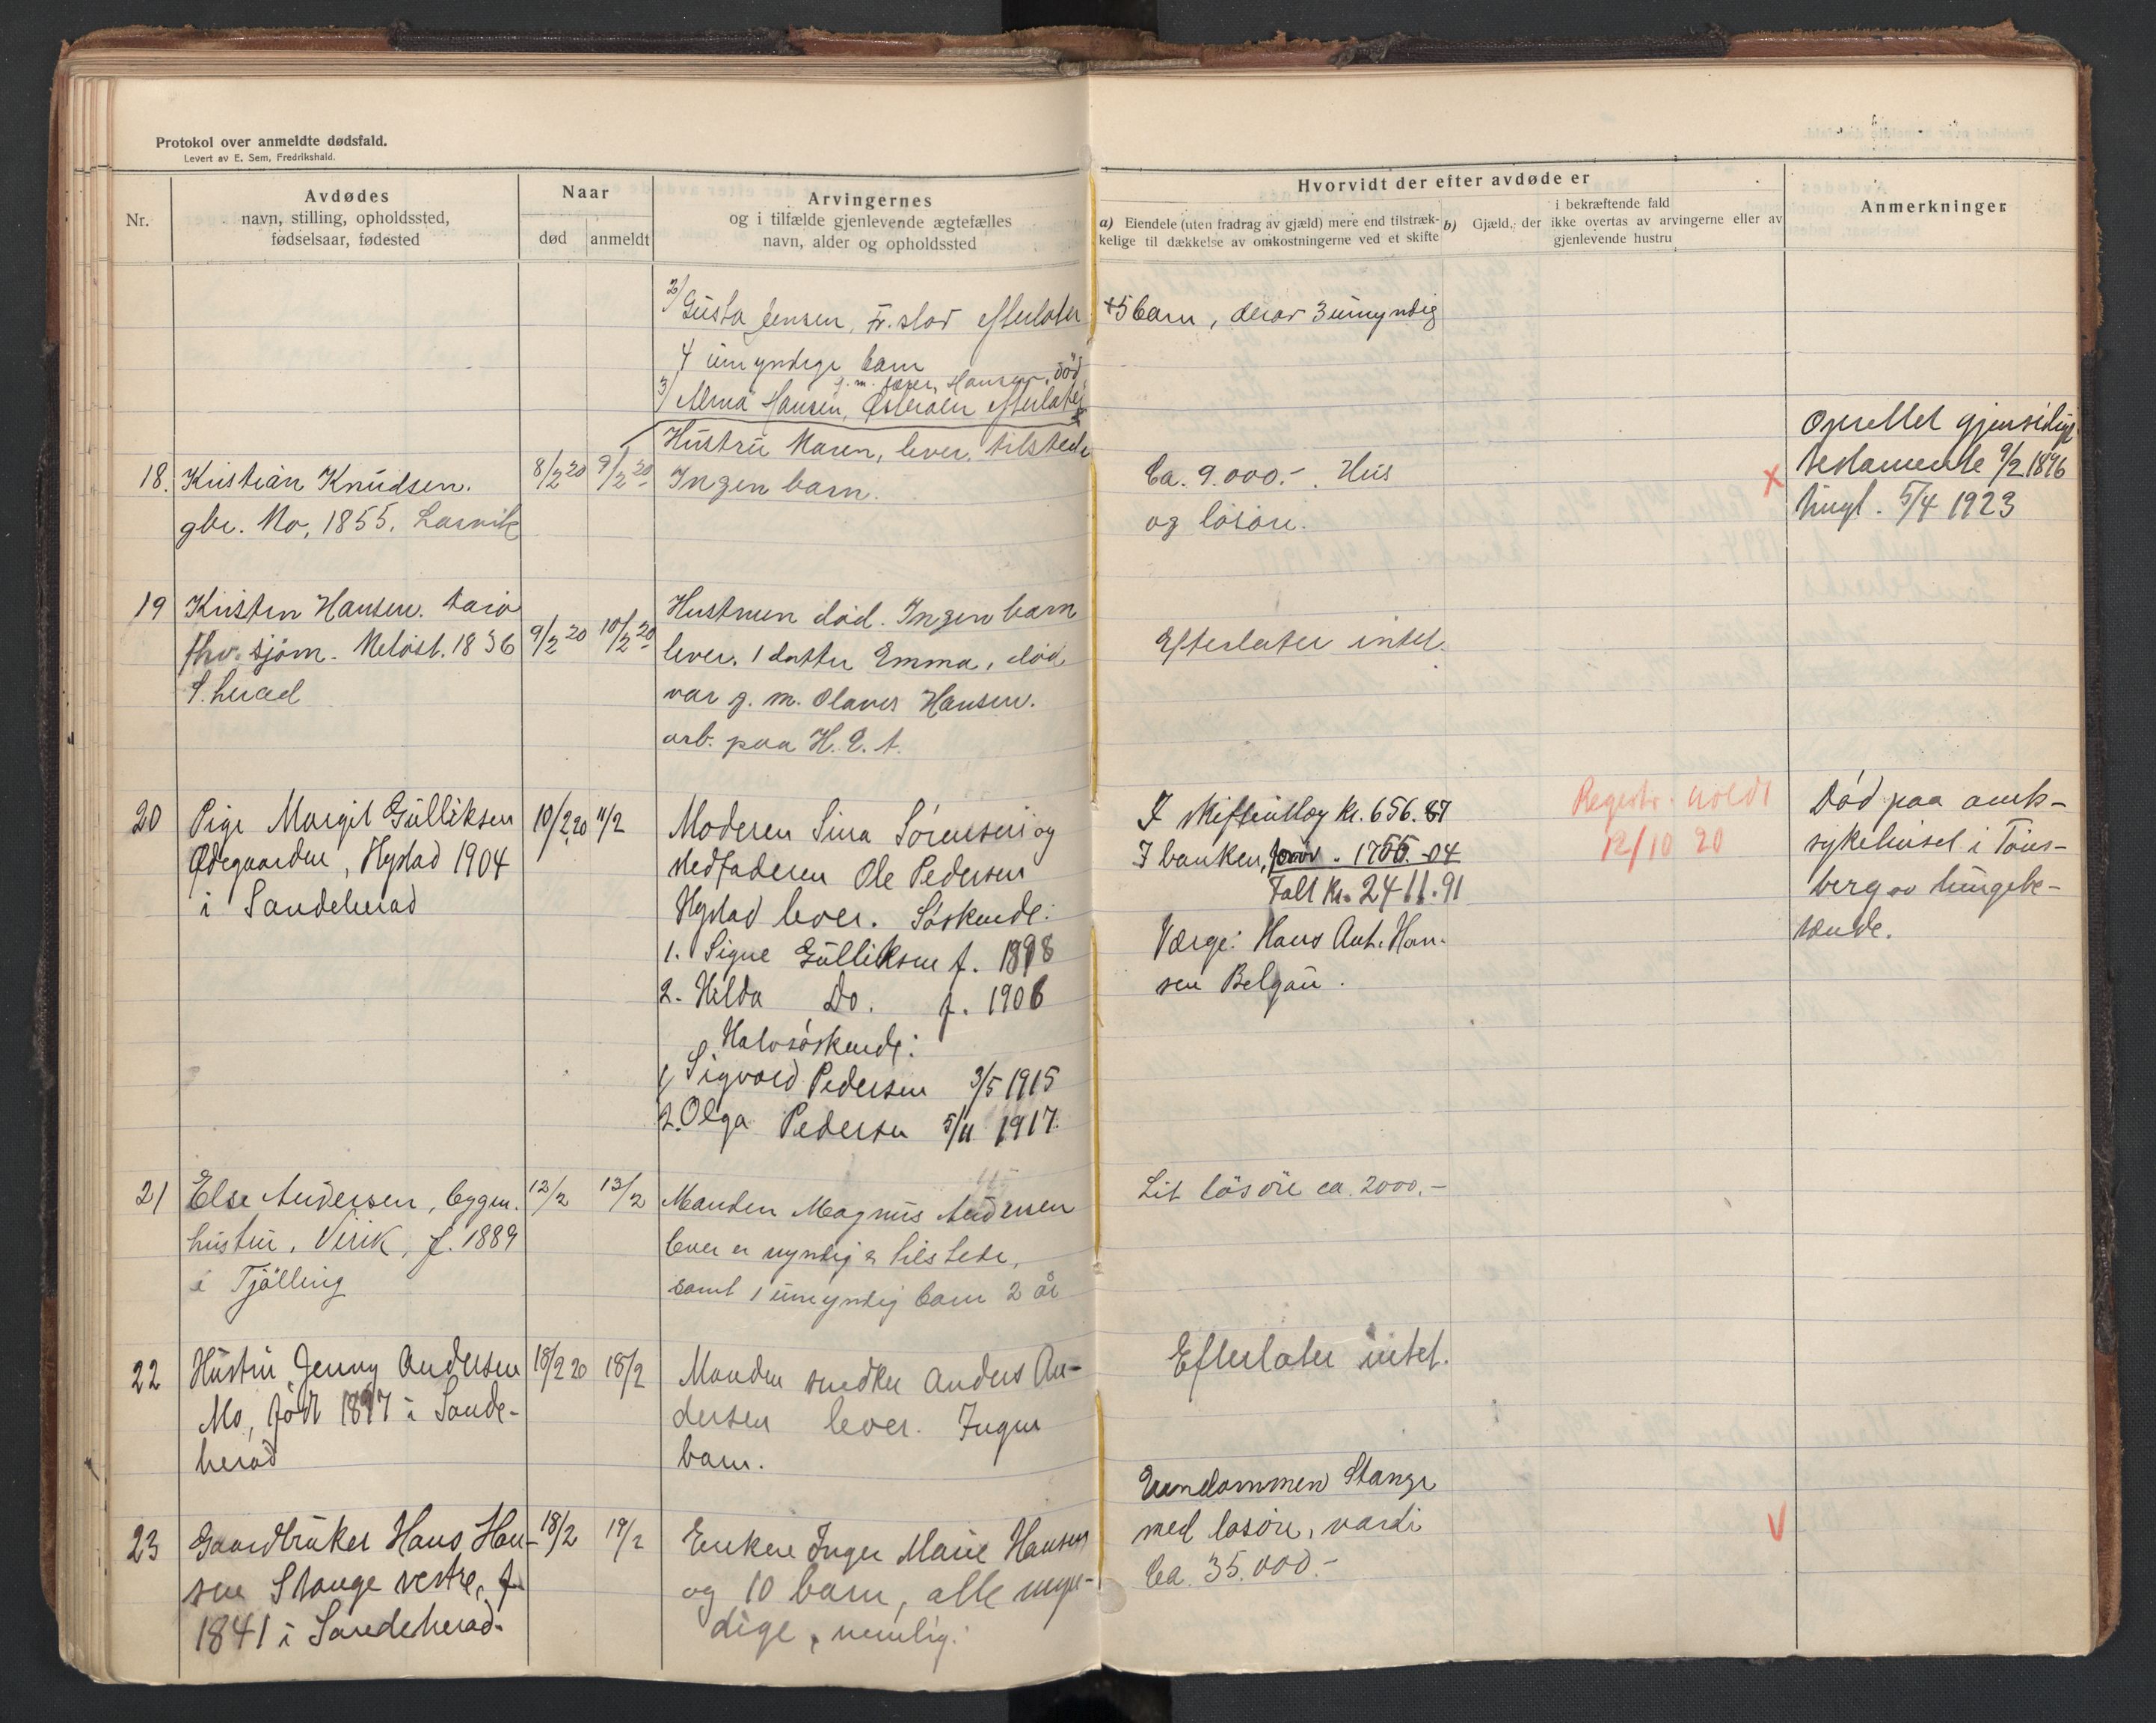 Protokol over anmeldte dødsfald.
Levert av E. Sem, Fredrikshald.
Nr.
Avdødes
navn, stilling, opholdssted,
fødselsaar, fødested
Naar
død
anmeldt
Arvingernes
og i tilfælde gjenlevende ægtefælles
navn, alder og opholdssted
Hvorvidt der efter avdøde er
a) Eiendele (uten fradrag av gjæld) mere end tilstræk-
kelige til dækkelse av omkostningerne ved et skifte
i bekræftende fald
b) Gjæld, der ikke overtas av arvingerne eller av
gjenlevende hustru
Anmerkninger
2) Gusta Jensen, Fr.stad efterlater
+5 barn, derav 3 umyndig
4 umyndige barn
g. m. Hansen, död
3) Alma Hansen, Österöen efterlater
18. Kristian Knudsen.
gbr. Mo, 1855. Larvik
8/2 20
9/2 20
Hustru Maren, lever, tilstede
Ingen barn.
Ca. 9.000.- . Hus
og løsøre.
x
Oprettet gjensidig
testamente 9/2 1896
tingl. 5/4 1923
19 Kristen Hansen.
fhv. sjöm. Meløst. 1836
S.herad
9/2 20
10/2 20
Hustruen död. Ingen barn
lever. 1 datter Emma, död,
var g. m. Olaves Hansen.
arb. paa H. E. t.
Efterlater intet.
20 Pige Margit Gulliksen
Ødegaarden, Hystad 1904
i Sandeherad
10/2 20
11/2
Moderen Sina Sörensen og
stedfaderen Ole Pedersen
Hystad lever. Söskende:
1. Signe Gulliksen f. 1898
2. Hilda Do. f. 1906
Halvsöskende:
1, Sigvard Pedersen 3/5 1915
2. Olga Pedersen 5/11 1917.
I skifteutlæg kr. 656.87
I banken, 1755.04
Talt kr. 2411.91
Værge: Hans Ant. Han-
sen Belgau.
Registr. holdt
12/10 20
Död paa amts-
sykehuset i Töns-
berg av lungebe-
tænde.
21 Else Andersen, bygm.
hustru, Virik, f. 1889
i Tjölling
12/2
13/2
Manden Magnus Andersen
lever er myndig & tilstede,
samt 1 umyndig barn 2 år
Lit lösöre ca. 2000.-
22 Hustru Jenny Andersen
Mo, född 1897 i Sande-
herad
18/2 20
18/2
Manden snedker Anders An-
dersen lever. Ingen
barn.
Efterlater intet.
23 Gaardbruker Hans Han-
sen Stange vestre, f.
1841 i Sandeherad.
18/2
19/2
Enken Inger Marie Hansen
og 10 barn, alle myn-
dige, nemlig:
Eiendommen Stange
med løsøre, værdi
Ca. 35.000.-
V